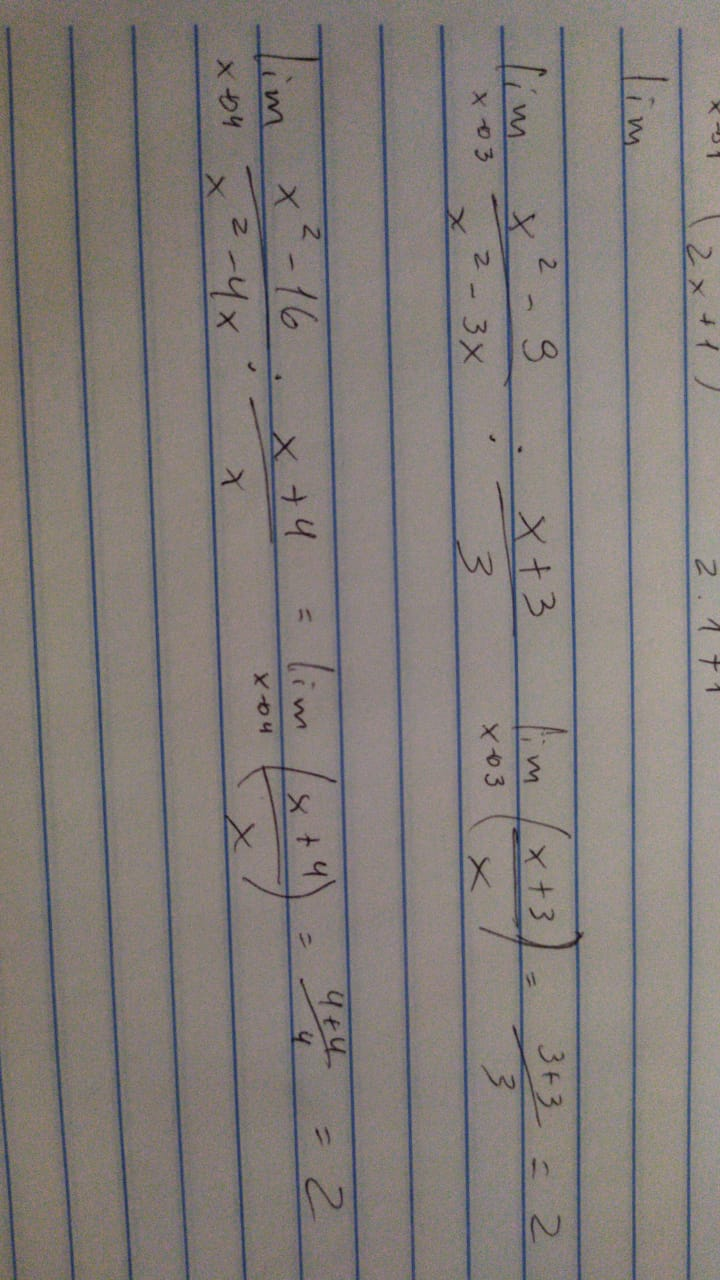 x→1 (2x+1) 2.1+1
lim
lim x→3 x² - 9 / x² - 3x : x+3 / 3 lim x→3 (x+3 / x) = 3+3 / 3 = 2
lim x→4 x² - 16 / x² - 4x : x+4 / x = lim x→4 (x+4 / x) = 4+4 / 4 = 2